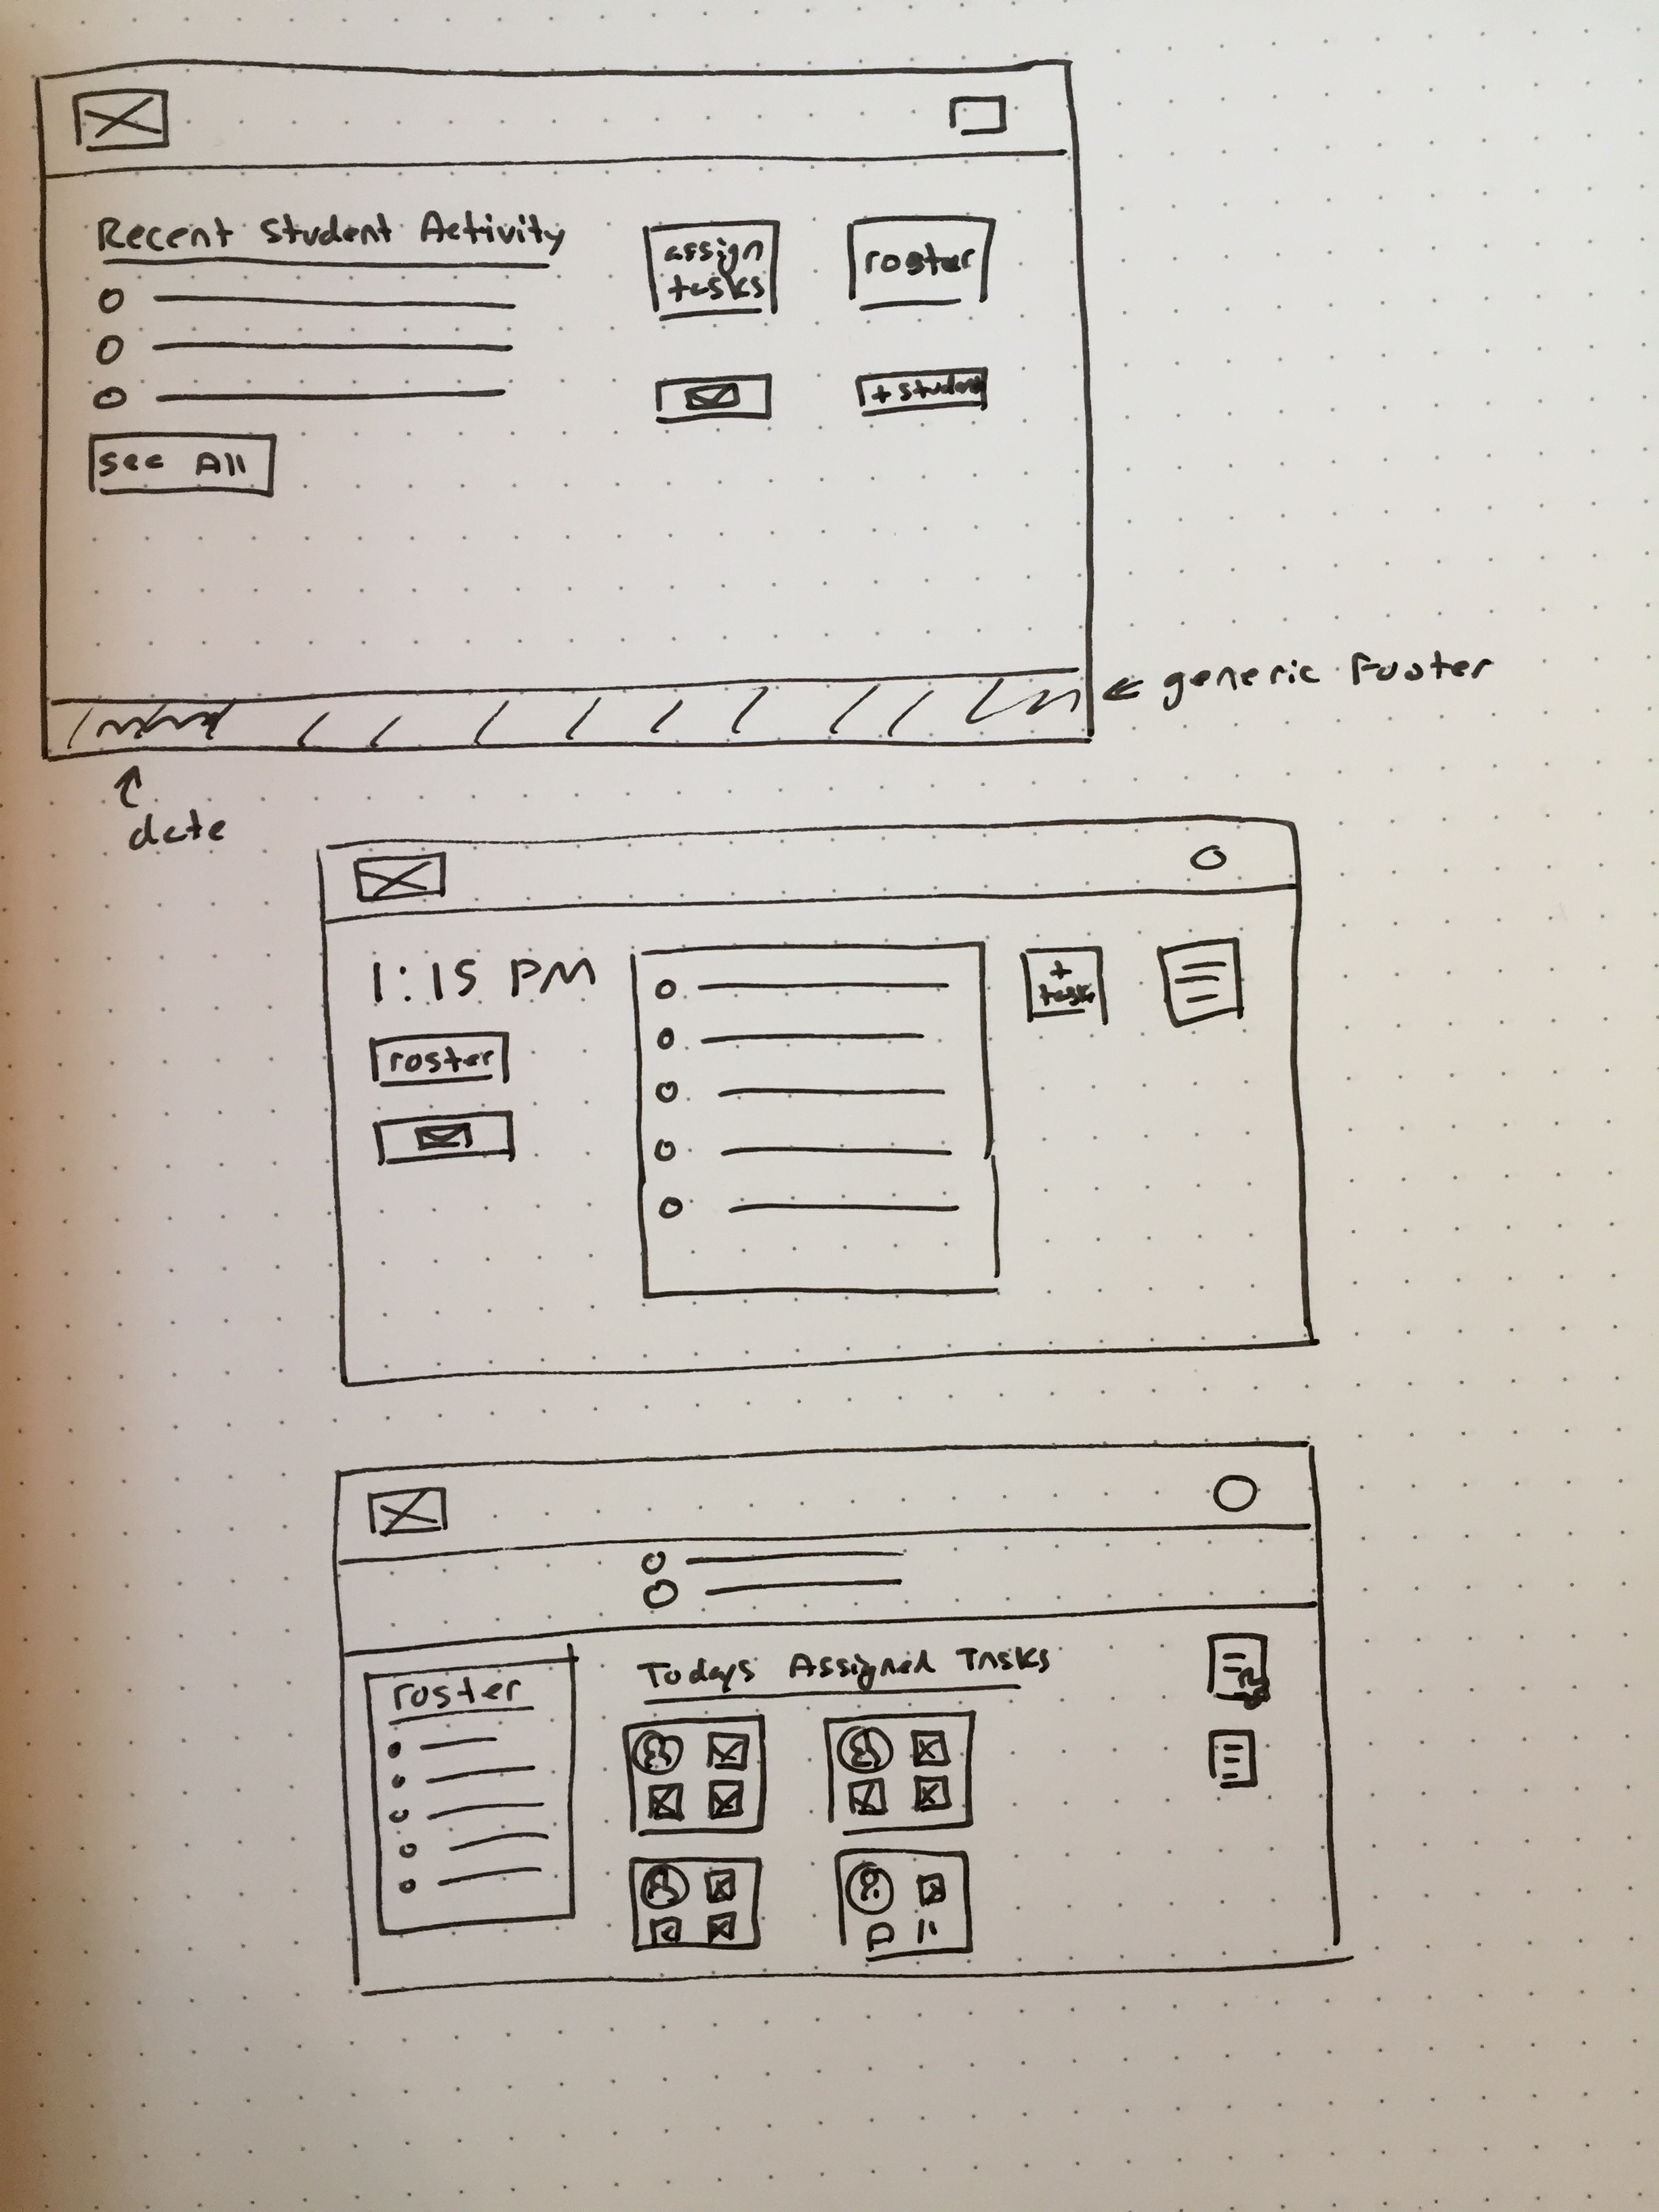 Recent Student Activity
assign
tasks
roster
+ student
See All
generic footer
date
1:15 PM
+
task
roster
roster
Todays Assigned Tasks